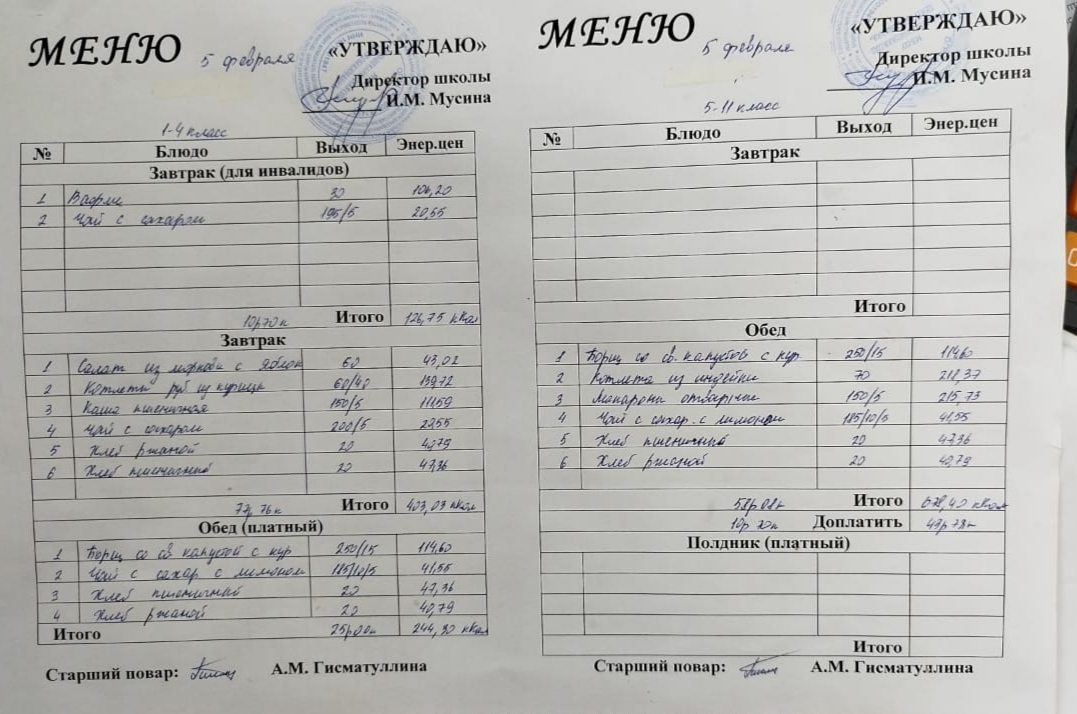 МЕНЮ 5 февраля «УТВЕРЖДАЮ»
Директор школы
И.М. Мусина
1-4 класс
№ Блюдо Выход Энер.цен
Завтрак (для инвалидов)
1 Вафли 30 106,20
2 Чай с сахаром 195/5 20,55
10р70к Итого 126,75 кКал
Завтрак
1 Салат из моркови с яблок 60 43,02
2 Котлеты руб из курицы 60/40 139,72
3 Каша пшеничная 150/5 111,59
4 Чай с сахаром 200/5 20,55
5 Хлеб ржаной 20 40,79
6 Хлеб пшеничный 20 47,36
77р 76к Итого 403,03 кКал
Обед (платный)
1 Борщ со св капустой с кур 250/15 114,60
2 Чай с сахар с лимоном 185/10/5 41,55
3 Хлеб пшеничный 20 47,36
4 Хлеб ржаной 20 40,79
Итого 25р00к 244,30 кКал
Старший повар: А.М. Гисматуллина
МЕНЮ 5 февраля «УТВЕРЖДАЮ»
Директор школы
И.М. Мусина
5-11 класс
№ Блюдо Выход Энер.цен
Завтрак
Итого
Обед
1 Борщ со св. капустой с кур. 250/15 114,60
2 Котлета из индейки 70 218,37
3 Макароны отварные 150/5 215,73
4 Чай с сахар. с лимоном 185/10/5 41,55
5 Хлеб пшеничный 20 47,36
6 Хлеб ржаной 20 40,79
58р08к Итого 678,40 кКал
10р 70к Доплатить 49р78к
Полдник (платный)
Итого
Старший повар: А.М. Гисматуллина